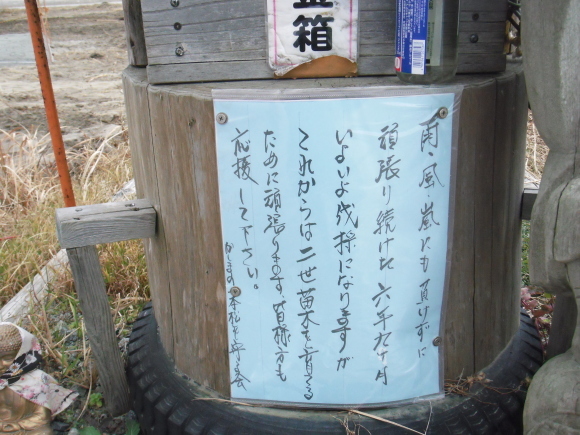 箱
雨、風、嵐にも負けずに
頑張り続けた六年九ヶ月
いよいよ伐採になりますが
これからは二世苗木を育てる
ために頑張ります、皆様方も
応援して下さい。